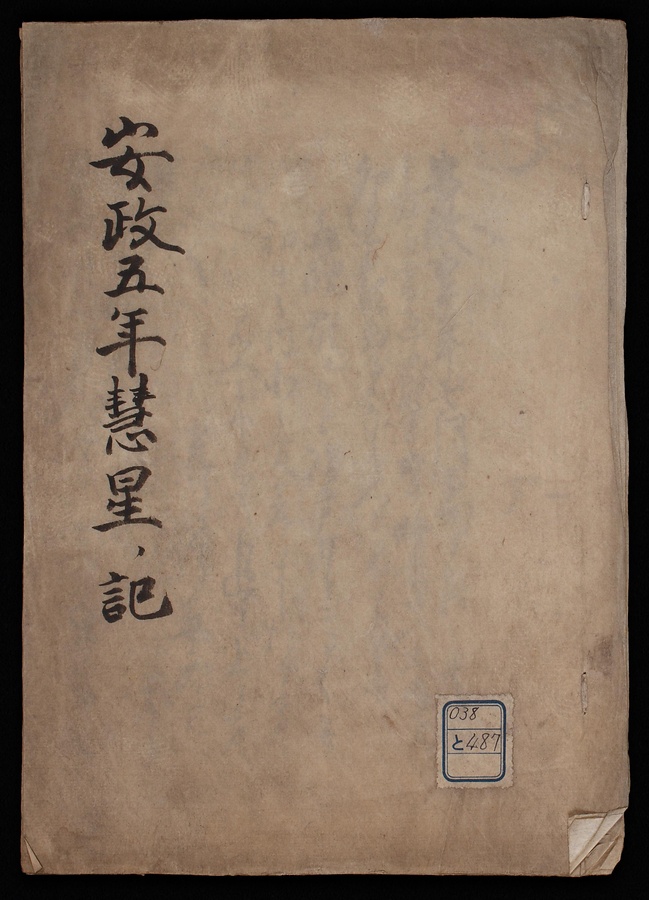 安政五年慧星ヽ記
038
と487